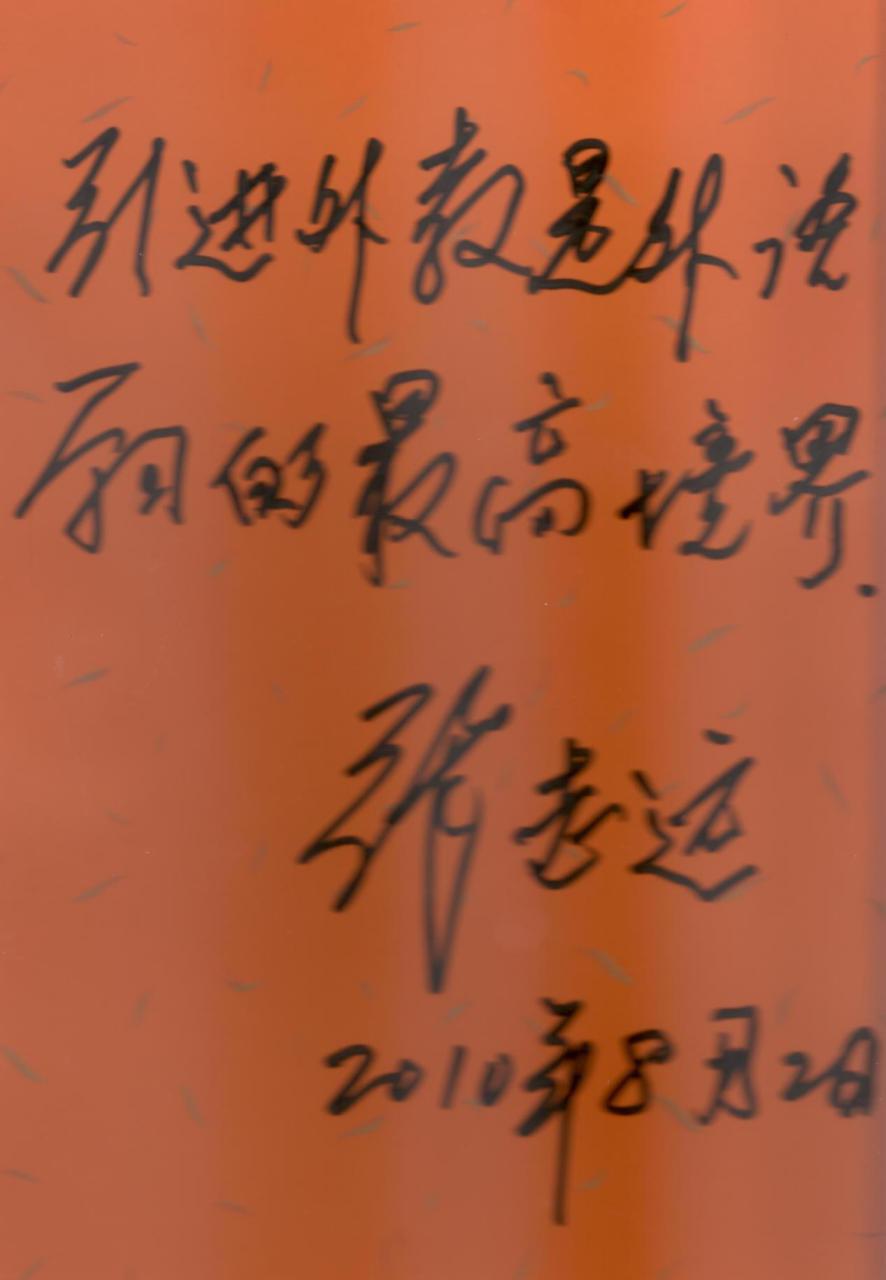 引进外教是外语
的最高境界.
张
2010年8月2日